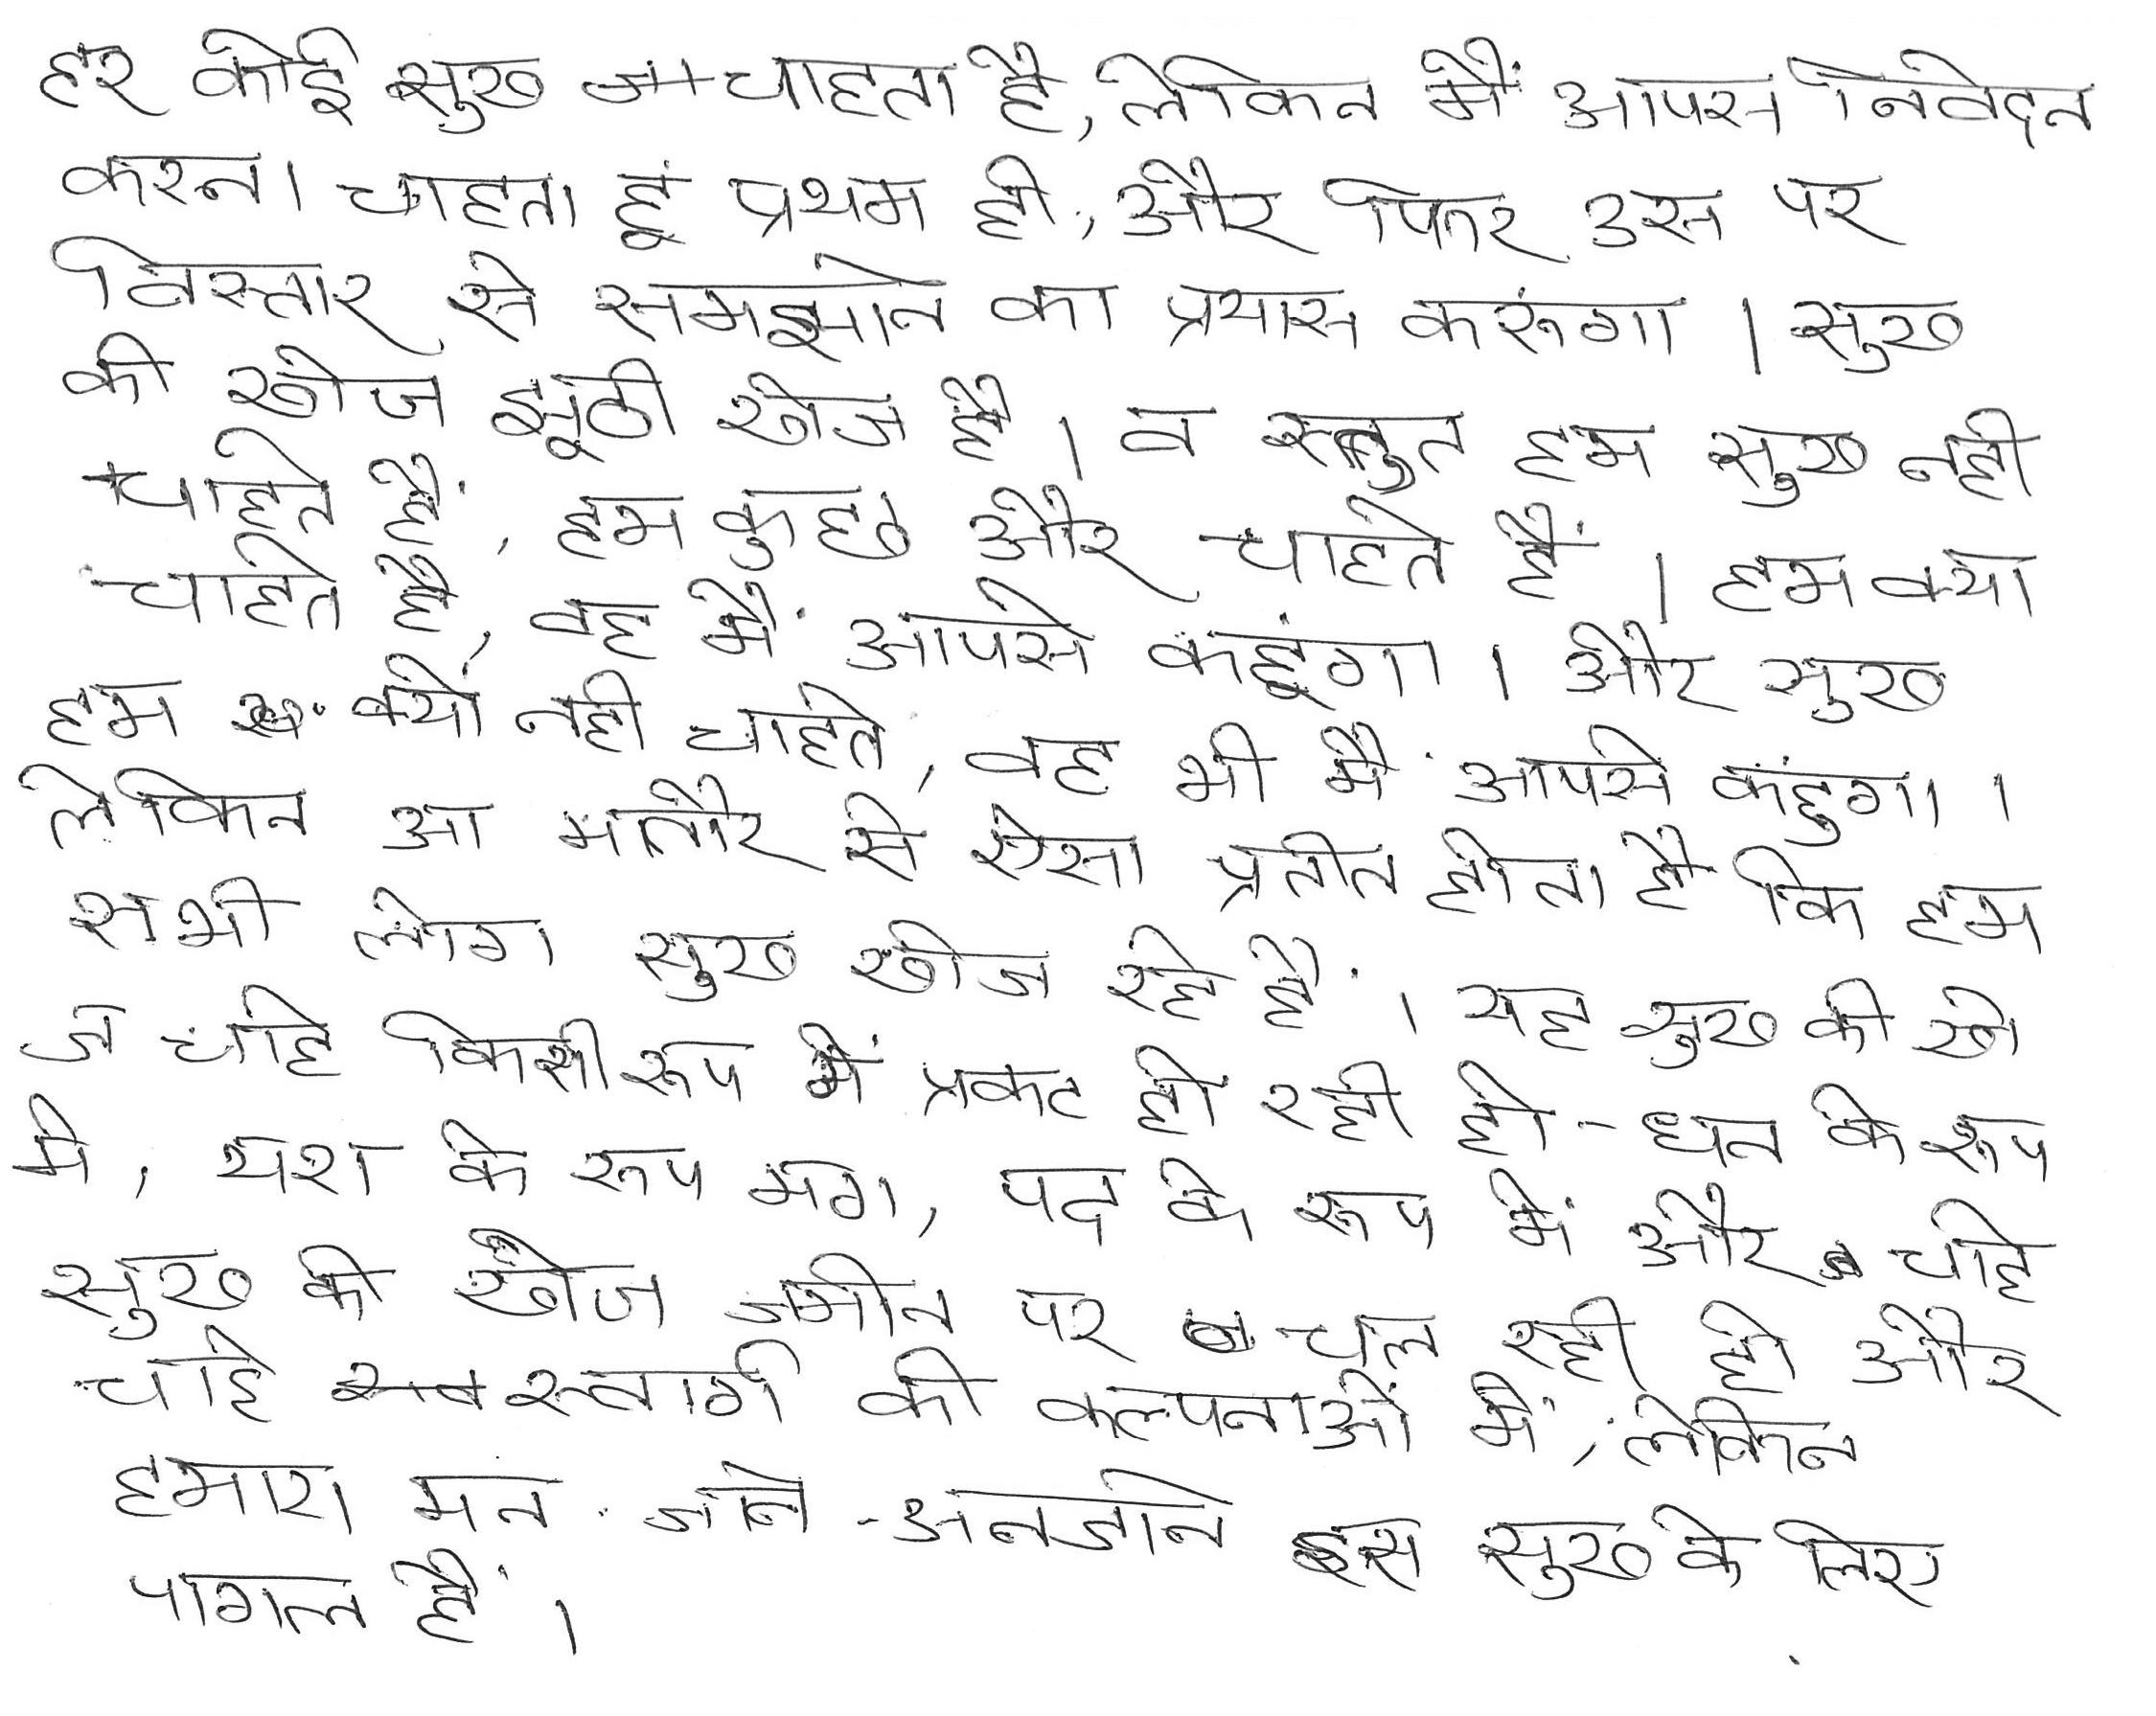 हर कोई सुख चाहता है, लेकिन मैं आपस निवेदन
करना चाहता हूं प्रथम ही, और फिर उस पर
विस्तार से समझाने का प्रयास करूंगा । सुख
की खोज झूठी खोज है । व स्तुत हम सुख नही
चाहते हैं, हम कुछ और चाहते हैं । हम क्या
चाहते है, वह मैं आपसे कहूंगा । और सुख
हम क्यों नही चाहते, वह भी मै आपसे कहुंगा ।
लेकिन आ मातौर से ऐसा प्रतीत होता है कि हम
सभी लोग सुख खोज रहे हैं । यह सुख की खो
ज चाहे किसी रूप में प्रकट हो रही हो - धन के रूप
मे, यश के रूप मग, पद के रूप में और चाहे
सुख की खोज जमीन पर चल रही हो और
चाहे स्वार्ग की कल्पनाओं में, लेकिन
हमारा मन जाने - अनजाने इस सुख के लिए
पागल हैं ।